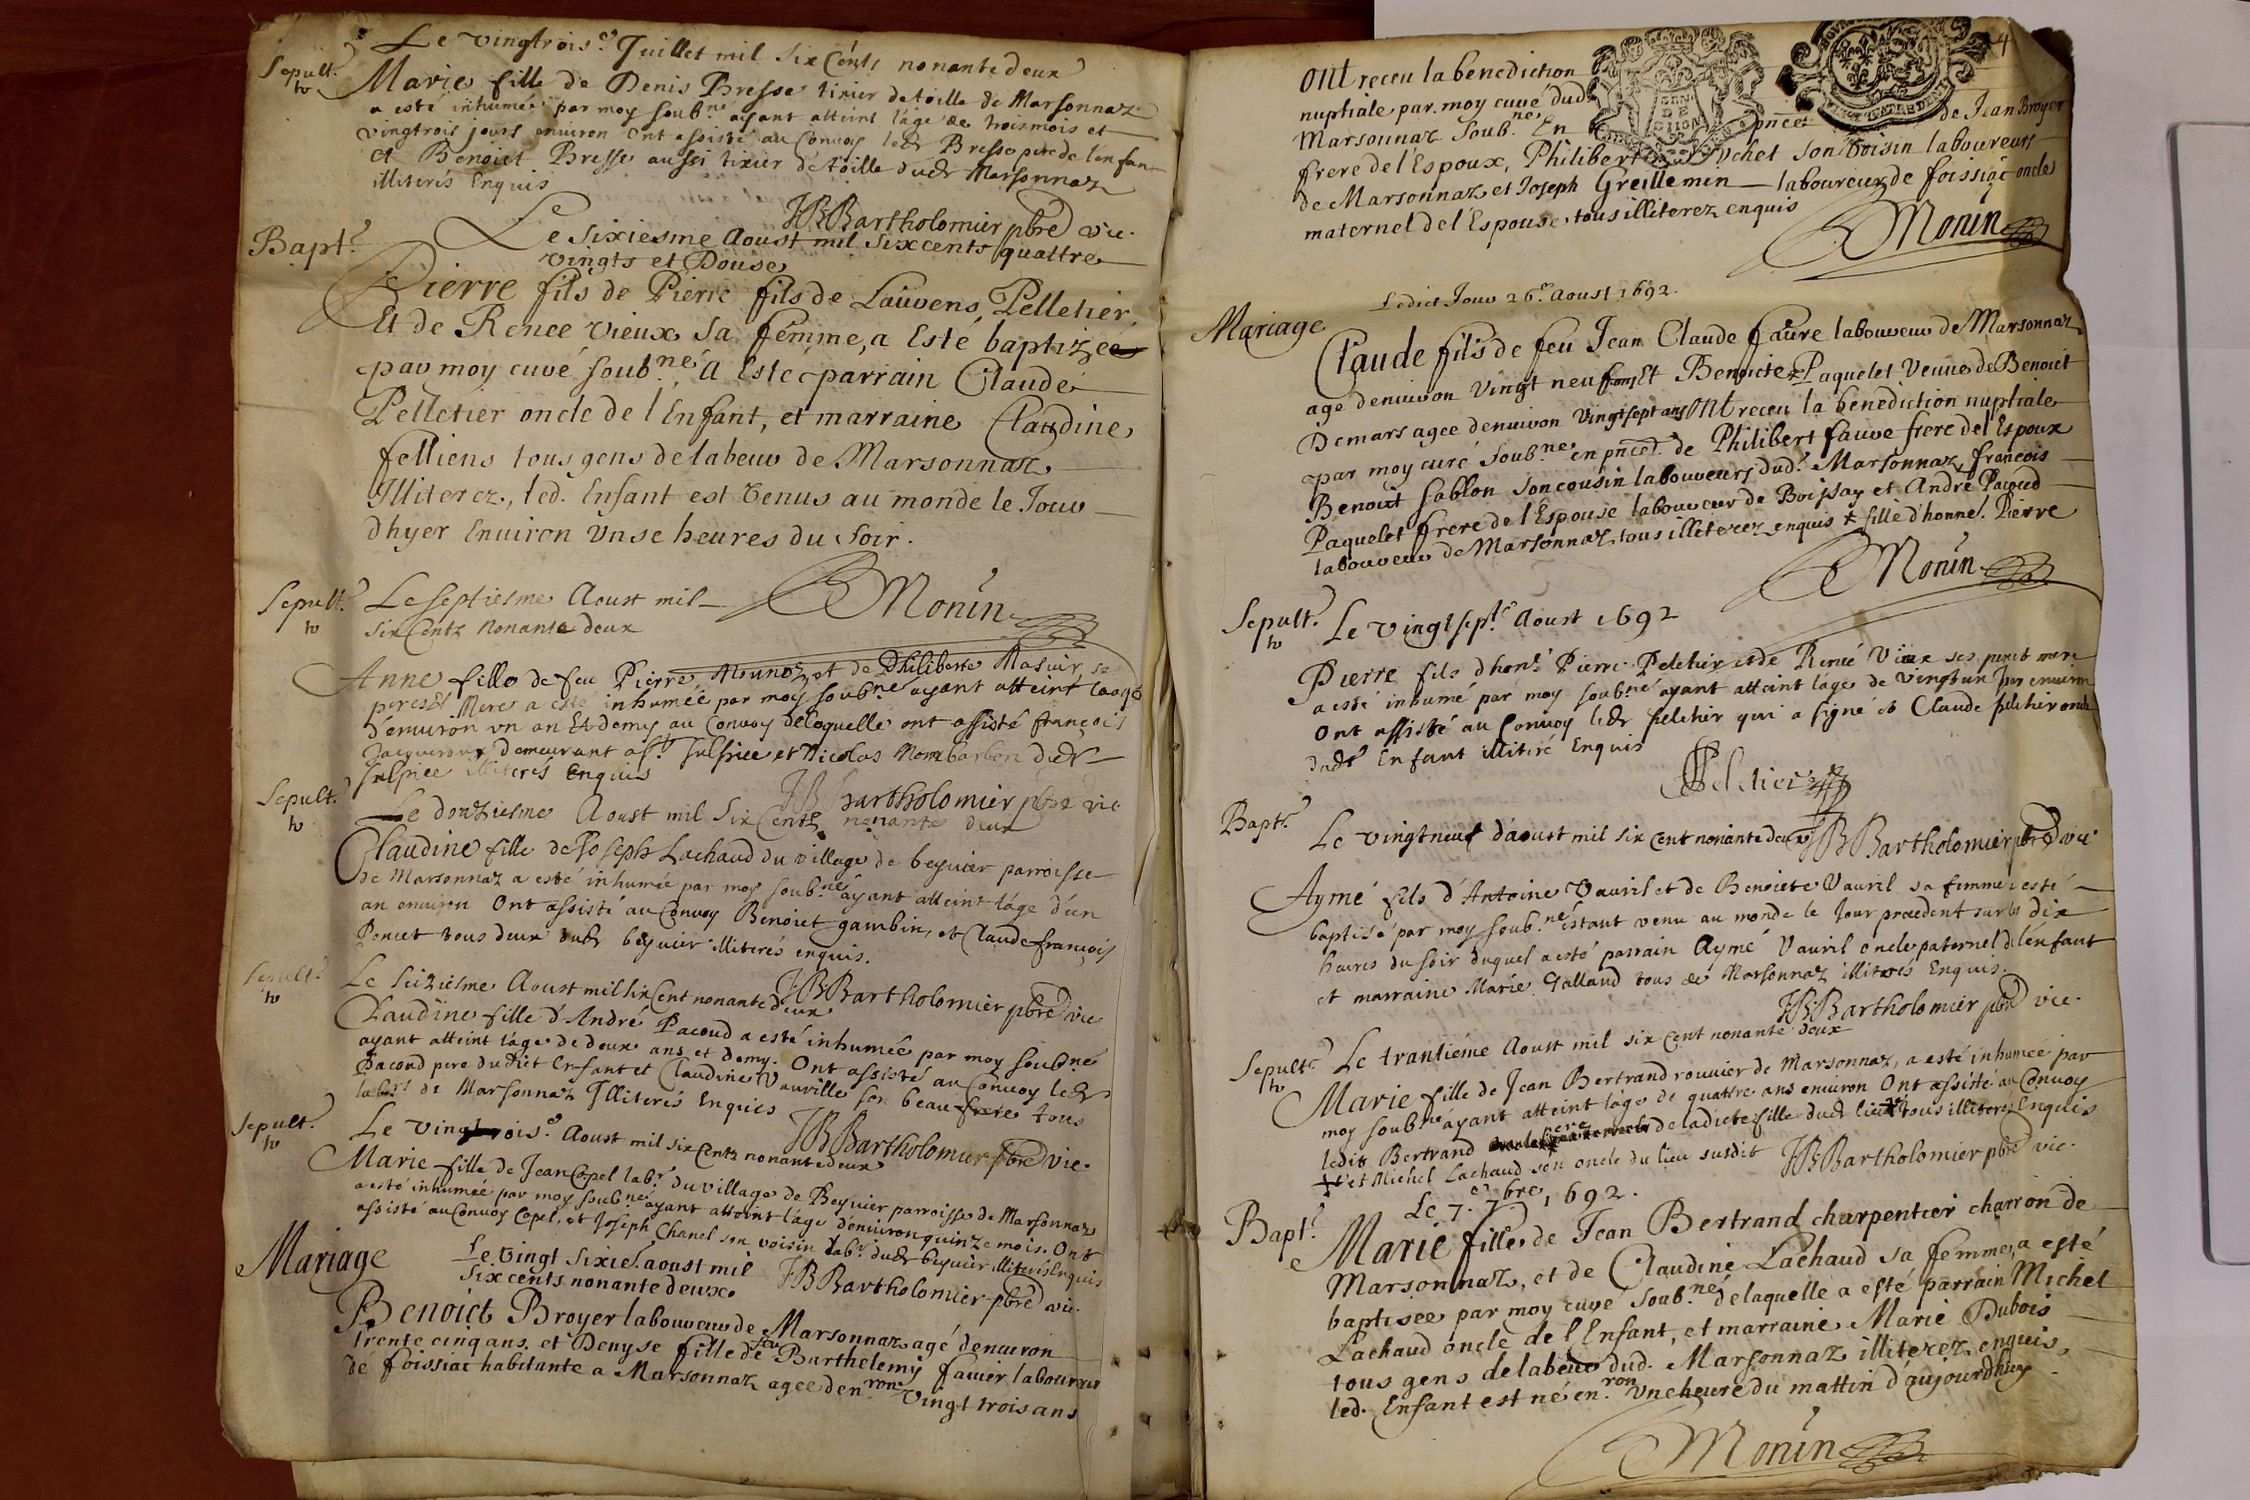 Le vingtrois.e Juillet mil six Cents nonante deux
Sepult.re
Marie fille de Denis Bresse tixier de toille de Marsonnaz
a esté inhumée par moy soub.né ayant atteint l'age de trois mois et
vingtrois jours environ ont assisté au Convoy led Bresse pere de l'enfan
et Benoict Bresse aussi tixier de toille dud Marsonnaz
illiterés Enquis
JB Bartholomier pbre vic.
Bapt.e
Le sixiesme Aoust mil six cents quattre
vingts et Douse
Pierre fils de Pierre fils de Laurens Pelletier
Et de Renee vieux sa femme, a Esté baptizé
par moy curé soub.né a Esté parrain Claude
Pelletier oncle de l'Enfant, et marraine Claudine
felliens tous gens de labeur de Marsonnaz
Illiterez, led. Enfant est venus au monde le Jour
dhyer Environ Unse heures du Soir.
Monin
Sepult.re
Le septiesme Aoust mil
six Cents Nonante deux
Anne fille de feu Pierre et de Philiberte Masuir se
peres Et Meres a esté inhumée par moy soub.né ayant atteint l'aage
d'environ un an Et demy au Convoy de laquelle ont assisté françois
Jacqueroux demeurant a S.t Sulpice et Nicolas Montbarbon dud
Sulpice illiterés Enquis
JB Bartholomier pbre vic
Sepult.re
Le douziesme Aoust mil Six Cents nonante deux
Claudine fille de Joseph Lachaud du village de beyvier parroisse
de Marsonnaz a esté inhumée par moy soub.né ayant atteint l'age d'un
an environ Ont assisté au Convoy Benoict gambin, et Claude françois
Poncet tous deux dud beyvier illiterés enquis.
JB Bartholomier pbre vic
Sepult.re
Le Seiziesme Aoust mil six Cent nonante deux
Claudine fille d'André Pacoud a esté inhumée par moy soub.né
ayant atteint l'age de deux ans et demy. Ont assisté au Convoy led
Pacoud pere du dict Enfant et Claudine Vauville son beau frere tous
lab.rs de Marsonnaz Illiterés Enquis
JB Bartholomier pbre vic.
Sepult.re
Le Vingtrois.e Aoust mil six Cents nonante deux
Marie fille de Jean Copel lab.r du village de Beyvier parroisse de Marsonnaz
a esté inhumée par moy soub.né ayant atteint l'age d'environ quinze mois. Ont
assisté au Convoy Copel, et Joseph Chanel son voisin lab.r dud beyvier illiterés Enquis
JB Bartholomier pbre vic.
Mariage
Le Vingt sixie.e aoust mil
six cents nonante deux.
Benoict Broyer laboureur de Marsonnaz agé denviron
trente cinq ans. et Denyse fille de feu Barthelemy favier laboureur
de foissiat habitante a Marsonnaz agee den.ron Vingt trois ans
4
Ont receu la benediction
nuptiale par moy curé dud.
Marsonnaz Soub.né En pnce. de Jean Broyer
frere de l'Espoux, Philibert son voisin laboureurs
de Marsonnaz et Joseph Greillemin laboureur de foissiat oncle
maternel de l'Espouse, tous illiterez enquis
Monin
Ledict Jour 26.e aoust 1692.
Mariage
Claude fils de feu Jean Claude faure laboureur de Marsonnaz
age denviron Vingt neuf ans Et Benoicte Paquelet Veuve de Benoict
Demars agee denviron Vingt sept ans Ont receu la benediction nuptiale
par moy curé Soub.né en pnce. de Philibert faure frere de l'Espoux
Benoict Sablon son cousin laboureurs dud.t Marsonnaz, francois
Paquelet frere de l'Espouse laboureur de Boissay et André Pacoud
laboureur de Marsonnaz tous illiterez enquis fille d'honne. Pierre
Monin
Sepult.re
Le Vingt sept.e Aoust 1692
Pierre fils d'hon.e Pierre Peletier et de Renée Vieux ses pere et mere
a esté inhumé par moy soub.né ayant atteint l'age de vingt un jour environ
Ont assisté au Convoy led peletier qui a signé et Claude peletier oncle
dudt Enfant illitiré Enquis
Peletier
Bapt.e
Le Vingtneuf d'aoust mil six Cent nonante deux
JB Bartholomier pbre vic
Aymé fils d'Antoine Vauril et de Benoiete Vauril sa femme a esté
baptisé par moy soub.né estant venu au monde le Jour precedent sur les dix
heures du soir duquel a esté parrain Aymé Vauril oncle paternel de l'enfant
et marraine Marie Galland tous de Marsonnaz illiterés Enquis.
JB Bartholomier pbre vic.
Sepult.re
Le trantiéme Aoust mil six Cent nonante deux
Marie fille de Jean Bertrand rouvier de Marsonnaz, a esté inhumée par
moy soub.né ayant atteint l'age de quattre ans environ Ont assisté au Convoy
ledit Bertrand pere de ladicte fille dud lieu tous illiterés Enquis
et Michel Lachaud son oncle du lieu susdit
JB Bartholomier pbre vic.
Le 7.e 7bre 1692.
Bapt.e
Marie fille de Jean Bertrand charpentier charron de
Marsonnaz, et de Claudine Lachaud sa femme, a esté
baptisee par moy curé Soub.né de laquelle a esté parrain Michel
Lachaud oncle de l'Enfant, et marraine Marie Dubois
tous gens de labeur dud. Marsonnaz illiterez enquis,
led. Enfant est né en.ron Une heure du mattin d'aujourdhuy
Monin